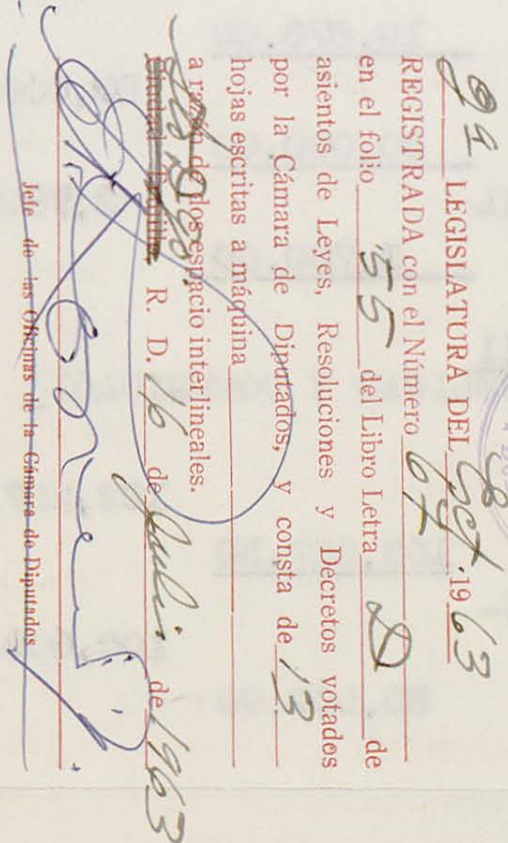 LEGISLATURA DEL 1963
REGISTRADA con el Número 67
en el folio 55 del Libro Letra D de
asientos de Leyes, Resoluciones y Decretos votados
por la Cámara de Diputados, y consta de 13
hojas escritas a máquina
a razón de dos espacio interlineales.
R. D. 16 de Julio de 1963
Jefe de las Oficinas de la Cámara de Diputados